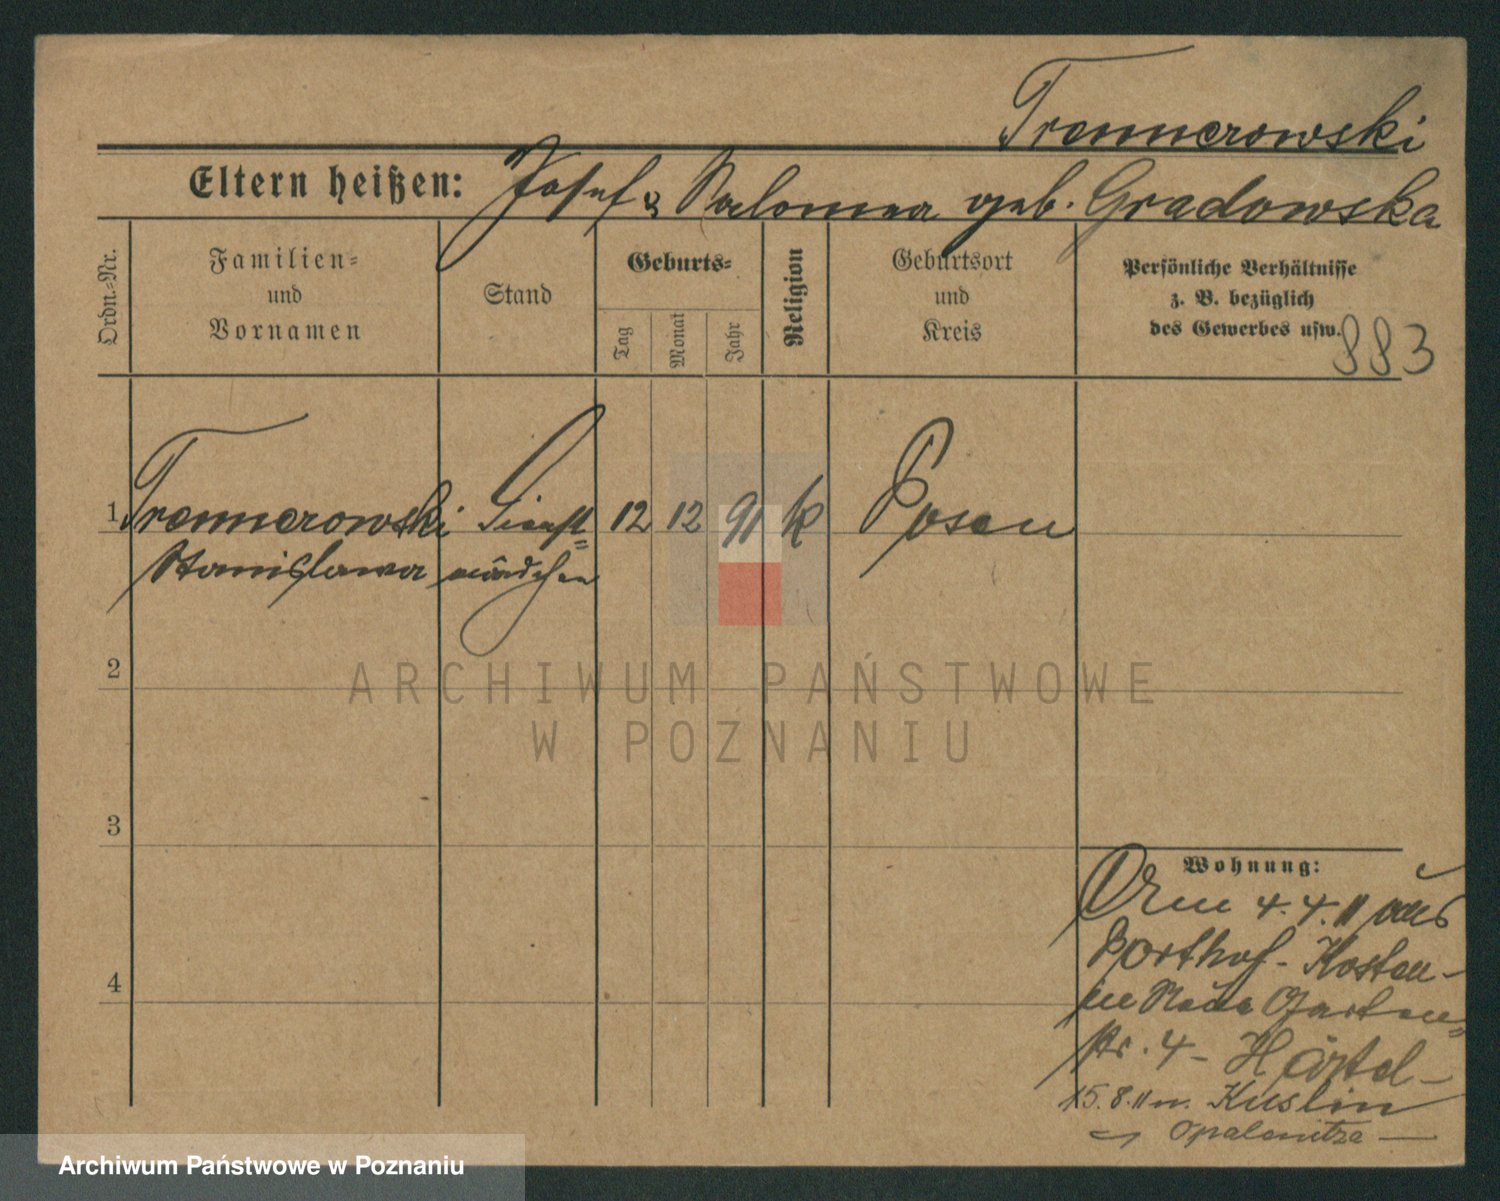 Trennerowski
Eltern heißen: Josef & Salomea geb. Gradowska
Ordn.-Nr.
Familien-
und
Vornamen
Stand
Geburts-
Tag
Monat
Jahr
Religion
Geburtsort
und
Kreis
Persönliche Verhältnisse
z. B. bezüglich
des Gewerbes usw.
883
1 Trennerowski Dienst= 12 12 91 k Posen
Stanislawa mädchen
2
3
4
Wohnung:
Am 4.4.11 aus
Kosten-
in Garten=
str. 4- Härtel-
15.8.11 n. Kuslin
Opalenitza
ARCHIWUM PAŃSTWOWE
W POZNANIU
Archiwum Państwowe w Poznaniu